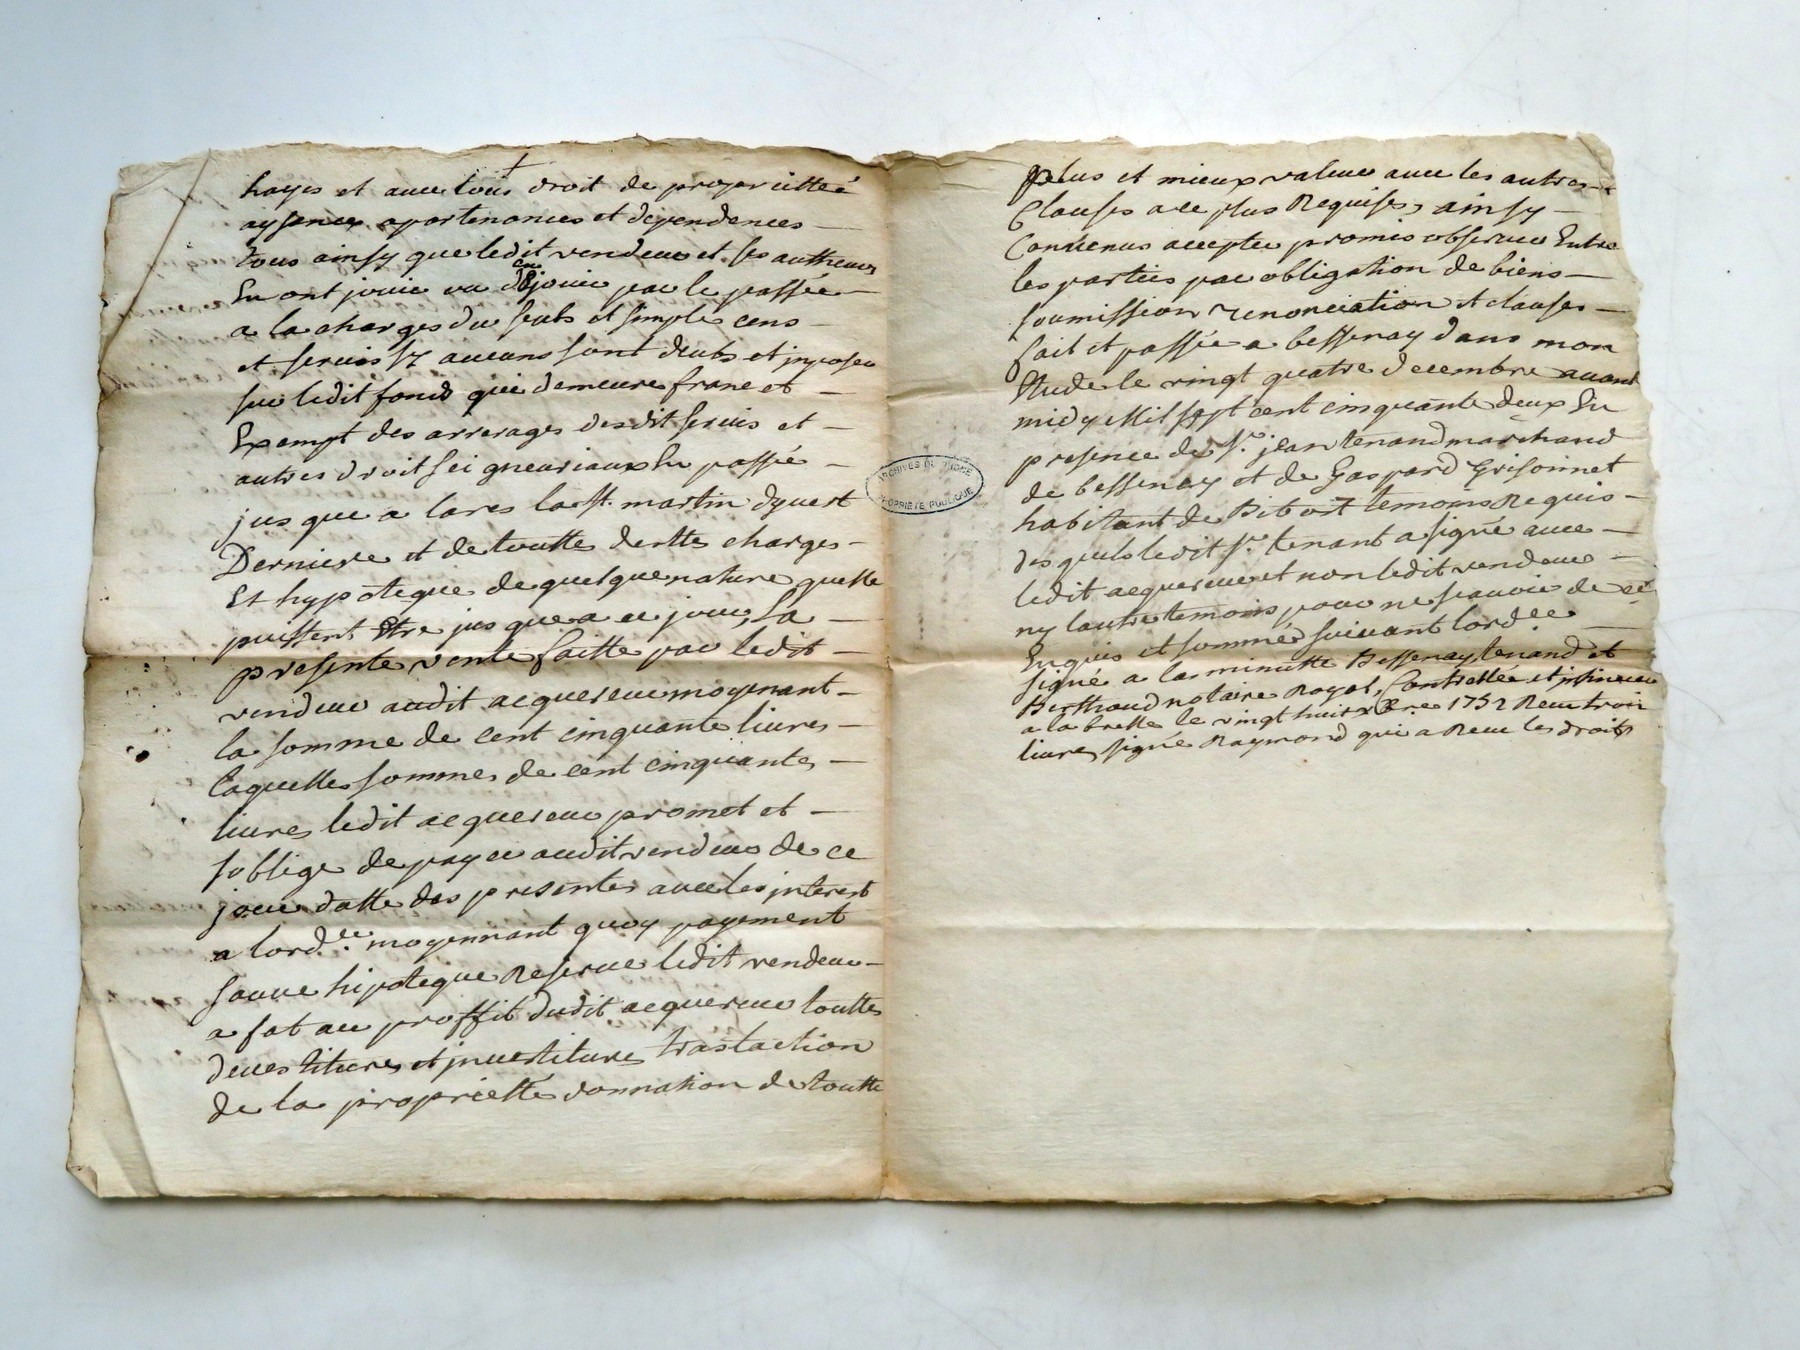 hayes et avec tous droit de proprietteé
aysences apartenances et dependences
tous ainsy que ledit vendeur et ses autheurs
En ont jouir ou dû en jouir par le passée
a la charges du seuls et simples cens
et servis sy aucuns sont deubs et imposer
sur ledit fond qui demeure franc et
Exempt des arrerages desdit servis et
autres droit seigneuriaux En passée
jus que a lares la st. martin dyvert
Derniere et de toutte dettes charges
Et hypoteque de quelque nature quelle
puissent Etre jus que a ce jour, La
presente vente faitte par ledit
vendeur audit acquereur moyenant
la somme de cent cinquante livres
laquelles sommes de cent cinquantes
livres ledit acquereur promet et
soblige de payer audit vendeur de ce
jour datte des presentes avec les interest
a lord.ce moyennant quoy payement
sauve hipoteque Reserve ledit vendeur
a fat au proffit dudit acquereur touttes
devestitures et jnvestitures traslaction
de la propriette donnation de toutte
plus et mieux valeur avec les autres
Clauses a ce plus Requises, ainsy
Convenus accepter promis observer Entre
les parties par obligation de biens
soumission renonciation et clauses
fait et passée a bessenay dans mon
Etude le vingt quatre decembre avant
midy Mil sept cent cinquante deux En
presence de Sr. jean tenand marchand
de bessenay et de Gaspard Grisonnet
habitant de Bibost temoins Requis
des quels ledit Sr. tenant a signé avec
ledit acquereur et non ledit vendeur
ny lautre temoins pour ne sçavoir de ce
Enquis et sommés suivant lord.ce
signé a la minutte Bessenay tenand et
Berthaud notaire Royal, Controllée et jnsinuer
a la brelle le vingt huit Xbre 1752 Receu trois
livres signé Raymond qui a Receu les droits
ARCHIVES DU RHONE
PROPRIÉTÉ PUBLIQUE